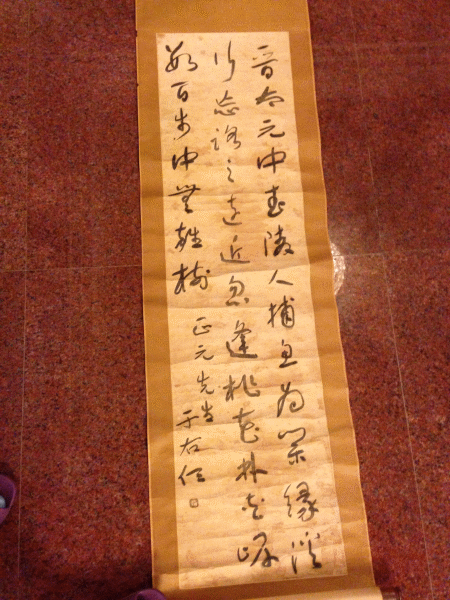 晉太元中武陵人捕魚為業緣溪
行忘路之遠近忽逢桃花林夾岸
數百步中無雜樹
正元先生
于右任